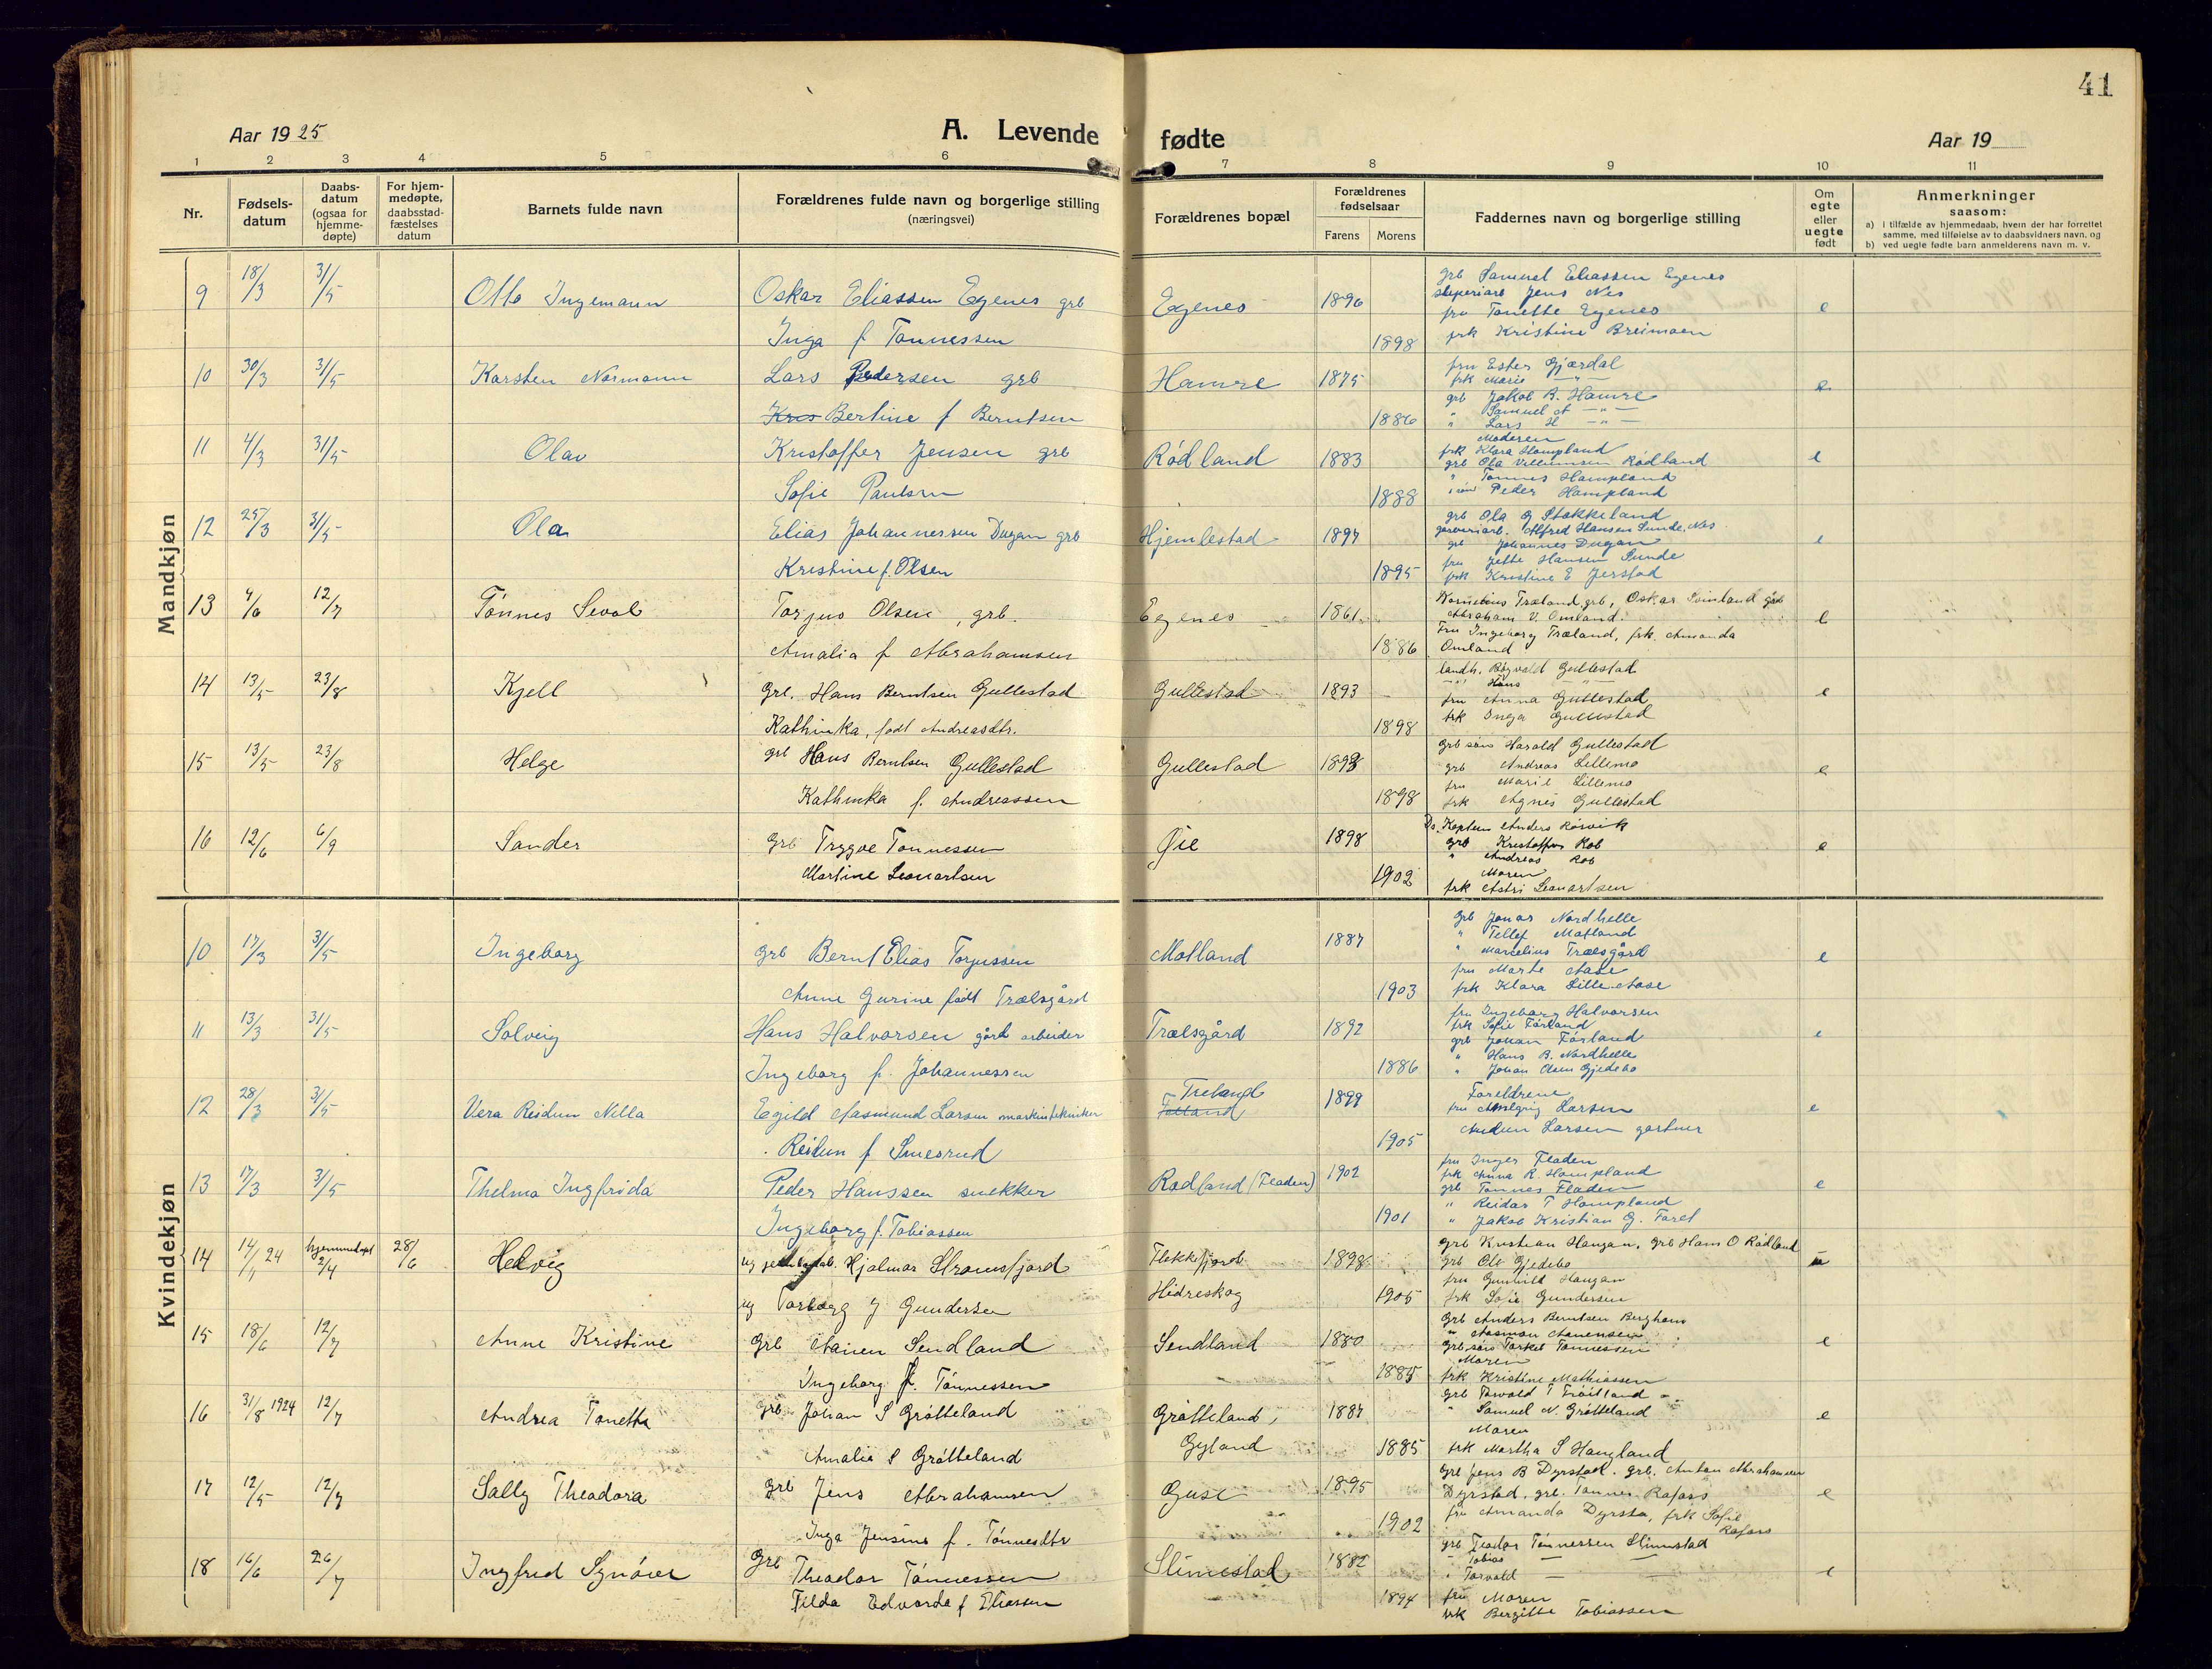 41
Aar 1925
A. Levende fødte
Aar 19
1 2 3 4 5 6 7 8 9 10 11
Nr.
Fødsels-
datum
Daabs-
datum
(ogsaa for
hjemme-
døpte)
For hjem-
medøpte,
daabsstad-
fæstelses
datum
Barnets fulde navn
Forældrenes fulde navn og borgerlige stilling
(næringsvei)
Forældrenes bopæl
Forældrenes
fødselsaar
Farens Morens
Faddernes navn og borgerlige stilling
Om
egte
eller
uegte
født
Anmerkninger
saasom:
a) i tilfælde av hjemmedaab, hvem der har forrettet
samme, med tilføielse av to daabsvidners navn, og
b) ved uegte fødte barn anmelderens navn m. v.
Mandkjøn
9 18/3 31/5 Otto Ingemann Oskar Eliassen Egenes grb Egenes 1896 e
Inga f Tønnessen 1898
grb Samuel Eliassen Egenes
Jens Nes
fru Tonette Egenes
frk Kristine Breimoen
10 30/3 31/5 Karsten Normann Lars Pedersen grb Hamre 1875 e
Bertine f Berntsen 1886
fru Ester Gjærdal
frk Marie — " —
grb Jakob R. Hamre
" Samuel A — " —
" Lars H — " —
11 4/3 31/5 Olav Kristoffer Jensen grb Rødland 1883 e
Sofie Paulsen 1888
Moderen
frk Klara Hompland
grb Ola Villumsen Rødland
" Tønnes Hompland
Peder Hompland
12 25/3 31/5 Ola Elias Johannessen Dugan grb Hjemlestad 1894 e
Kristine f. Olsen 1895
grb Ola G Stakkeland
garveriarb. Alfred Hansen Sunde, Nes
grb Johannes Dugan
fru Jette Hansen Sunde
frk Kristine E Jerstad
13 4/6 12/7 Tønnes Seval Torjus Olsen, grb. Egenes 1861 e
Amalia f Abrahamsen 1886
Kornelius Træland, grb, Oskar Svinland grb
Abraham V. Omland.
Fru Ingeborg Træland, frk. Amanda
Omland
14 13/5 23/8 Kjell Grb. Hans Berntsen Gullestad Gullestad 1893 e
Kathinka, født Andreasdtr. 1898
landh. Røgvald Gullestad
— " — Hans — " —
fru Anna Gullestad
frk Inga Gullestad
15 13/5 23/8 Helge grb Hans Berntsen Gullestad Gullestad 1893 e
Kathinka f. Andreassen 1898
grb søn Harald Gullestad
grb Andreas Lillemo
fru Marie Lillemo
frk Agnes Gullestad
16 12/6 6/9 Sander Grb Trygve Tønnessen Øie 1898 e
Martine Leonartsen 1902
Kaptein Anders Rørvik
grb Kristoffer Rob
" Andreas Rob
Moren
frk Astri Leonartsen
Kvindekjøn
10 17/3 31/5 Ingeborg grb Bernt Elias Torjussen Motland 1887 e
Anne Gurine født Trælsgård 1903
grb Jonas Nordhelle
" Tellef Motland
" Marcelius Trælsgård
fru Marte Aase
frk Klara Lille-Aase
11 13/3 31/5 Solveig Hans Halvorsen gårdarbeider Trælsgård 1892 e
Ingeborg f. Johannessen 1886
fru Ingeborg Halvorsen
frk Sofie Førland
grb Johan Førland
" Hans B. Nordhelle
" Johan Olsen Gjedebo
12 28/3 31/5 Vera Reidun Nilla Egild Aasmund Larsen maskintekniker Treland 1899 e
Reidun f Smesrud 1905
Foreldrene
fru Larsen
Audun Larsen gartner
13 17/3 31/5 Thelma Ingfrida Peder Hanssen snekker Rødland (Fladen) 1902 e
Ingeborg f. Tobiassen 1901
fru Inger Fladen
frk Anna R. Hompland
grb Tønnes Fladen
" Reidar T Hompland
" Jakob Kristian G. Foret
14 14/11 24 hjemmedøpt 2/4 28/6 Helvig ug Hjalmar Strømsfjord Flekkefjord 1898
ug Torborg J Gundersen Hidreskog 1905
grb Kristian Haugan, grb Hans O Rødland
grb Ole Gjedebo
fru Gunhild Haugan
frk Sofie Gundersen
15 18/6 12/7 Anne Kristine grb Aanen Sendland Sendland 1880 e
Ingeborg f. Tønnessen 1885
grb Anders Berntsen Berghom
" Aasmon Aanensen
grb. søn Torkel Tønnessen
Moren
frk Kristine Mathiassen
16 31/8 1924 12/7 Andrea Tonette grb Johan S Grøtteland Grøtteland, 1887 e
Amalie S Grøtteland Gyland 1885
grb Torvald T
" Samuel N. Grøtteland
Moren
frk Martha S Haugland
17 12/5 12/7 Sally Theodora grb Jens Abrahamsen Guse 1895 e
Inga Jensine f. Tønnesdtr 1902
grb Jens B Dyrstad. grb. Anton Abrahamsen
Dyrstad. grb. Tønnes Rafoss
fru Amanda Dyrsta, frk Sofie
Rafoss
18 16/6 26/7 Ingfred Synøve Grb Theodor Tønnessen Slimestad 1882 e
Tilda Edvarda f Eliassen 1894
grb Teodor Tønnessen Slimestad
" Tobias — —
" Torvald — —
fru Moren
frk Bergitte Tobiassen